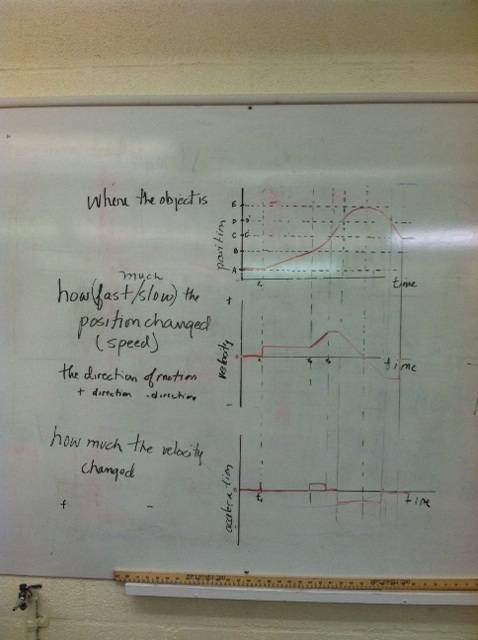 where the object is
E
D D'
C C'
B
A
position
t₁
time
much
how (fast/slow) the
position changed
(speed)
the direction of motion
+ direction - direction
+
velocity
time
-
how much the velocity
changed
+ -
acceleration
t₁
time